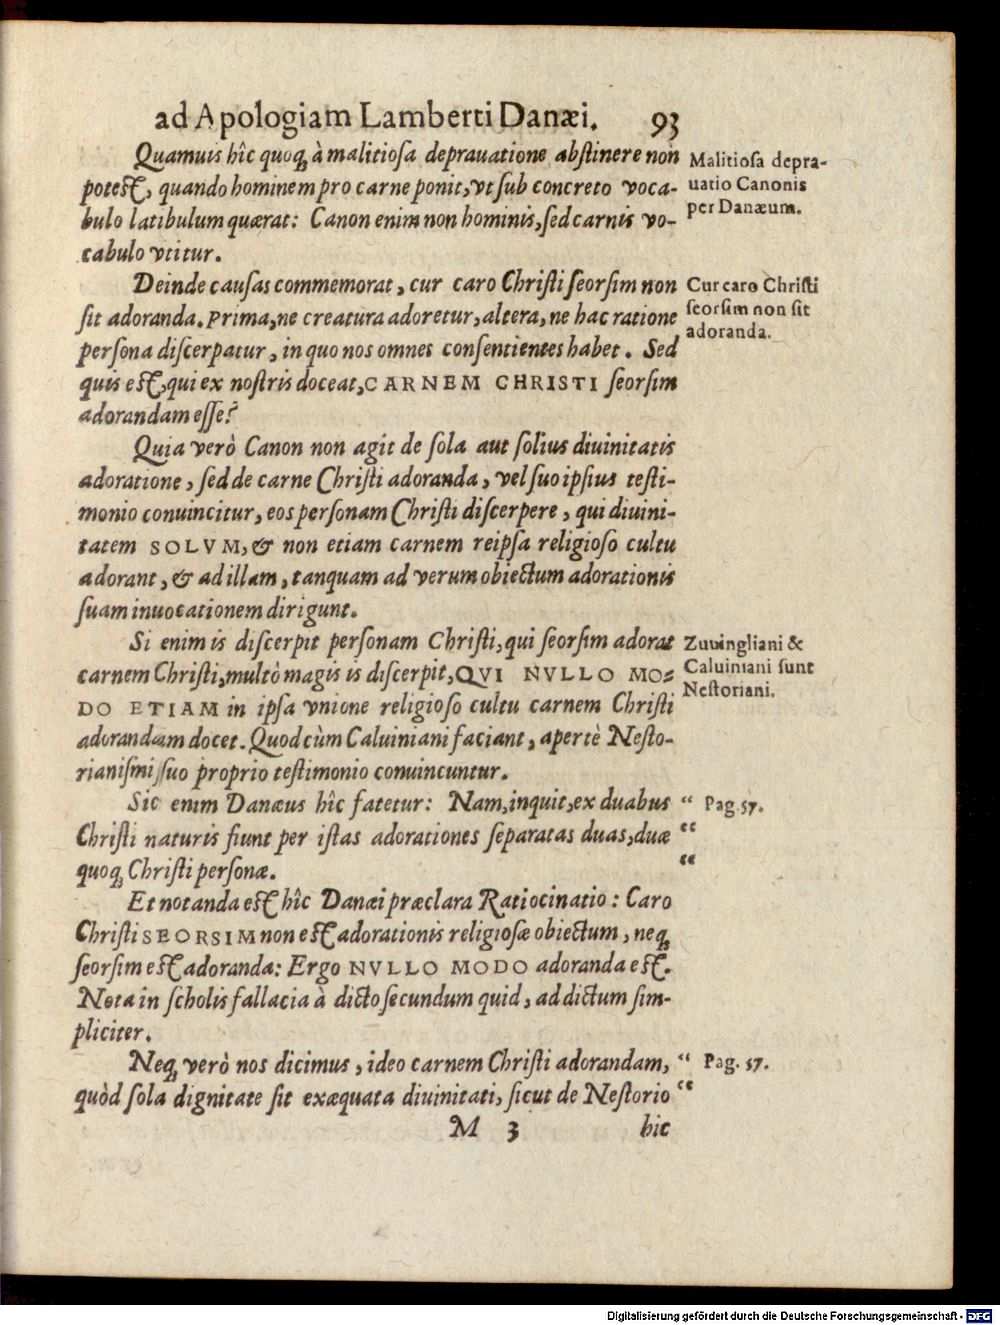 ad Apologiam Lamberti Danæi. 93
Quamuis hîc quoq; à malitiosa deprauatione abstinere non
potest, quando hominem pro carne ponit, vt sub concreto voca-
bulo latibulum quærat: Canon enim non hominis, sed carnis vo-
cabulo vtitur.
Malitiosa depra-
uatio Canonis
per Danæum.
Deinde causas commemorat, cur caro Christi seorsim non
sit adoranda. Prima, ne creatura adoretur, altera, ne hac ratione
persona discerpatur, in quo nos omnes consentientes habet. Sed
quis est, qui ex nostris doceat, CARNEM CHRISTI seorsim
adorandam esse?
Cur caro Christi
seorsim non sit
adoranda.
Quia verò Canon non agit de sola aut solius diuinitatis
adoratione, sed de carne Christi adoranda, vel suo ipsius testi-
monio conuincitur, eos personam Christi discerpere, qui diuini-
tatem SOLVM, & non etiam carnem reipsa religioso cultu
adorant, & ad illam, tanquam ad verum obiectum adorationis
suam inuocationem dirigunt.
Si enim is discerpit personam Christi, qui seorsim adorat
carnem Christi, multò magis is discerpit, QVI NVLLO MO-
DO ETIAM in ipsa vnione religioso cultu carnem Christi
adorandam docet. Quod cùm Caluiniani faciant, apertè Nesto-
rianismi suo proprio testimonio conuincuntur.
Zuuingliani &
Caluiniani sunt
Nestoriani.
Sic enim Danæus hîc fatetur: Nam, inquit, ex duabus “ Pag. 57.
Christi naturis fiunt per istas adorationes separatas duas, duæ “
quoq; Christi personæ. “
Et notanda est hîc Danæi præclara Ratiocinatio: Caro
Christi SEORSIM non est adorationis religiosæ obiectum, neq;
seorsim est adoranda: Ergo NVLLO MODO adoranda est.
Nota in scholis fallacia à dicto secundum quid, ad dictum sim-
pliciter.
Neq; verò nos dicimus, ideo carnem Christi adorandam, “ Pag. 57.
quòd sola dignitate sit exæquata diuinitati, sicut de Nestorio “
M 3 hic
Digitalisierung gefördert durch die Deutsche Forschungsgemeinschaft - DFG